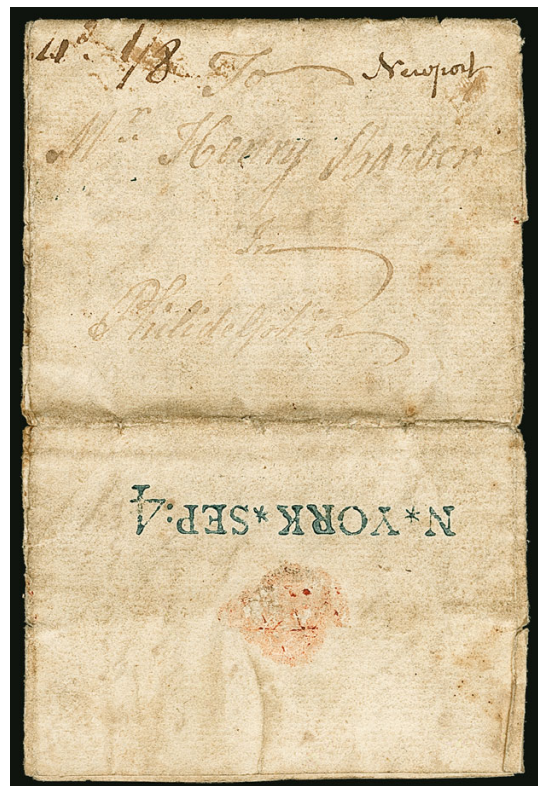 4d 1/8 To Newport
Mr. Henry Barber
In
Philidelphia
N*YORK*SEP:4